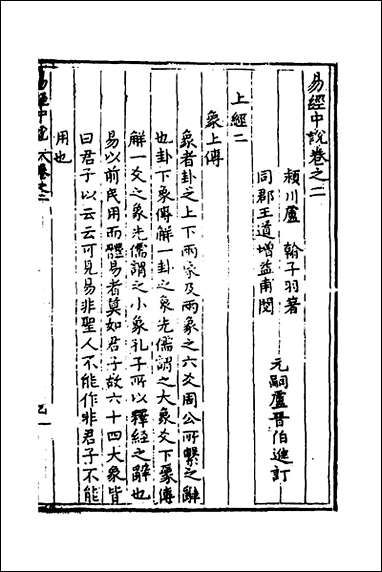 易經中說卷之二
潁川盧　翰子羽著
同郡王道增益甫閱
元嗣盧晉伯進訂
上經二
象上傳
象者卦之上下兩象及兩象之六爻周公所繫之辭
也卦下象傳解一卦之象先儒謂之大象爻下象傳
解一爻之象先儒謂之小象孔子所以釋經之辭也
易以前民用而體易者莫如君子故六十四大象皆
曰君子以云云可見易非聖人不能作非君子不能
用也
易經中說
卷之二